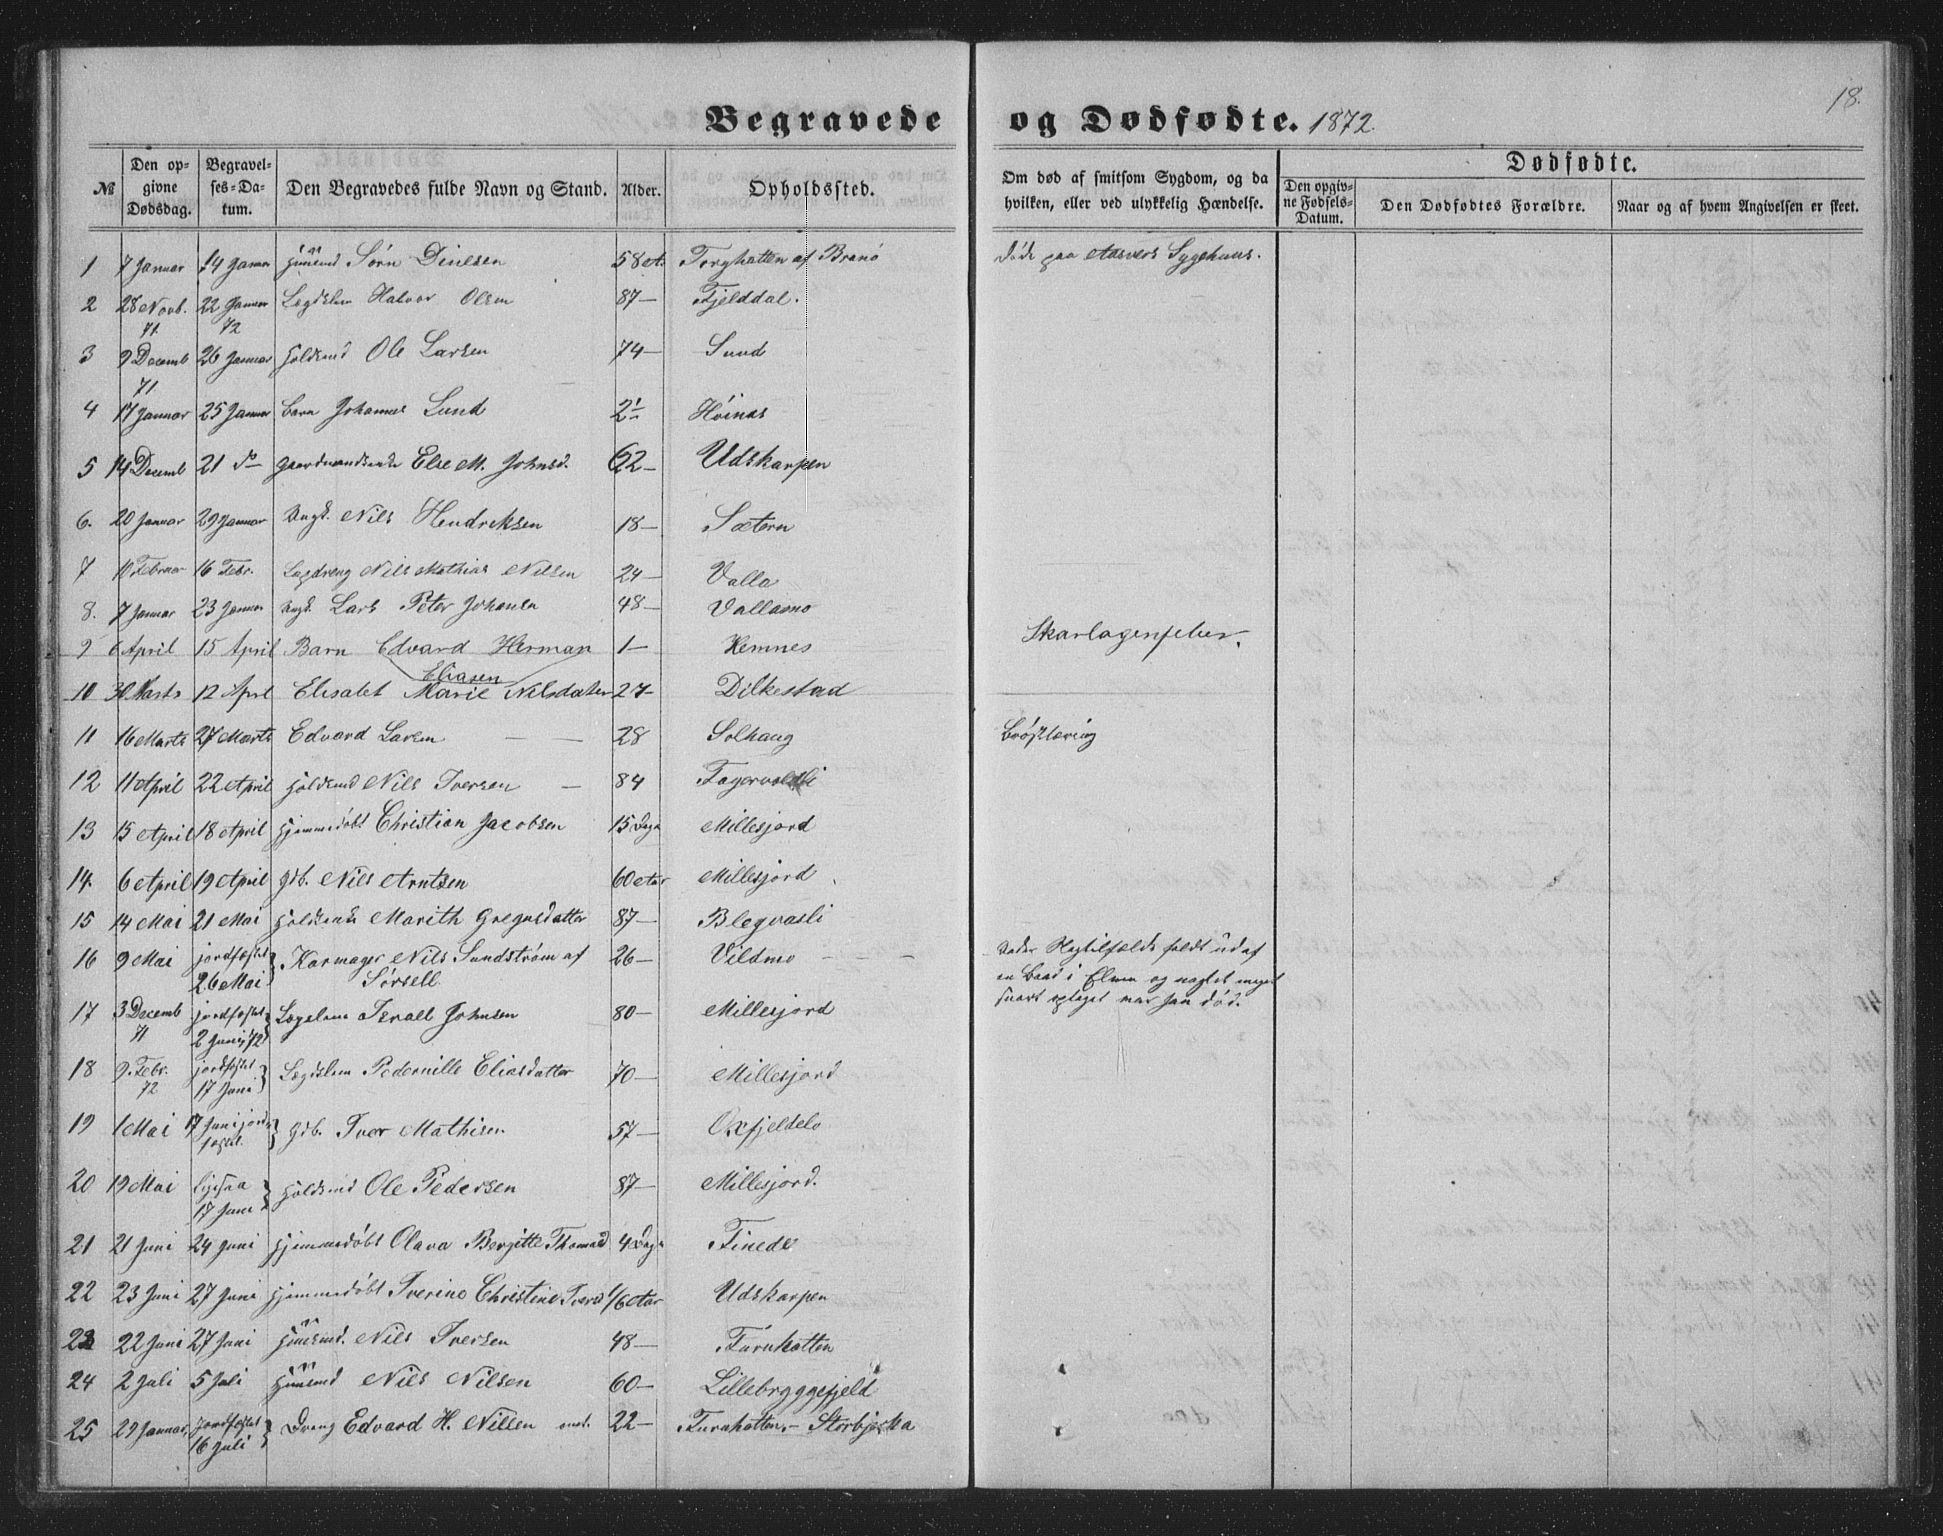 18.
Begravede og Dødfødte. 1872.
№
Den opgivne Dødsdag.
Begravelses-Datum.
Den Begravedes fulde Navn og Stand.
Alder.
Opholdssted.
Om død af smitsom Sygdom, og da hvilken, eller ved ulykkelig Hændelse.
Dødfødte.
Den opgivne Fødsels-Datum.
Den Dødfødtes Forældre.
Naar og af hvem Angivelsen er skeet.
1 7 Januar 14 Januar Huusmd Sørn Dinesen 58 Torghatten af Brønø Døde paa Aasvers Sygehuus.
2 28 Novb. 71. 22 Januar 72 Lægdslem Halvor Olsen 87— Fjelddal.
3 9 Decemb 71. 26 Januar Holdsmd Ole Larsen 74— Sund
4 17 Januar 25 Januar Barn Johannes Lund Høinæs
5 14 Decemb 21 do Gaardmandsenke Else M. Johnsd. 62— Udskarpen
6. 20 Januar 29 Januar Ungk. Nils Hendriksen 18— Sætern
7 10 Februar 16 Febr. Nils Mathias Nilsen 24— Valla
8. 7 Januar 23 Januar Ungk. Lars Peter Johansen 48— Vallamo
9 6 April 15 April Barn Edvard Herman 1— Hemnes Skarlagensfeber.
Eliasen
10 30 Marts 12 April Elisabet Marie Nilsdatter 27— Dilkestad
11 16 Marts 27 Marts Edvard Larsen — — 28 Solhaug
12 11 April 22 April Holdsmd Nils Iversen — 84
13 15 April 18 April Hjemmedøbt Christian Jacobsen 15 Dage Millesjord
14. 6 April 19 April Gdb. Nils Arntsen 60 Aar Millesjord
15 14 Mai 21 Mai Holdsenke Marith Gregusdatter 87— Blegvasli
16 9 Mai jordfæstet 26 Mai } Karmager Nils Sundstrøm af Sørsell. 26— Vildmo — — — faldt ud af
en Baad i Elven og
optaget var han død.
17 3 Decemb 71 jordfæstet 2 Juni 72 } Israel Johnsen 80— Millesjord
18 9. Febr. 72 jordfæstet 17 Juni } Lægdslem Pedernille Eliasdatter 70— Millesjord
19 1 Mai 17 Juni jordfæstet. } Gdb. Iver Mathisen 57— Oxfjeldelv
20 19 Mai ligesaa 17 Juni } Holdsmd Ole Pedersen 87— Millesjord.
21 21 Juni 24 Juni Hjemmedøbt Olava Bergitte Thomasd 4 Dage Finede
22 23 Juni 27 Juni Hjemmedøbt Iverine Christine Iversd 1/6 Aar Udskarpen
23 22 Juni 27 Juni Huusmd. Nils Iversen 48— Furuhatten
24 2 Juli 5 Juli Huusmd Nils Nilsen 60— Lillebryggefjeld
25 29 Januar, Jordfæstet 16 Juli } Dreng Edvard H. Nilsen 22— Furuhatten — Storbjerka